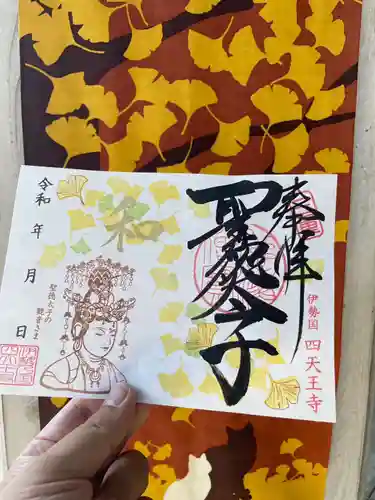 奉拝
聖徳太子
伊勢国 四天王寺
和
聖徳太子の
観音さま
令和 年 月 日